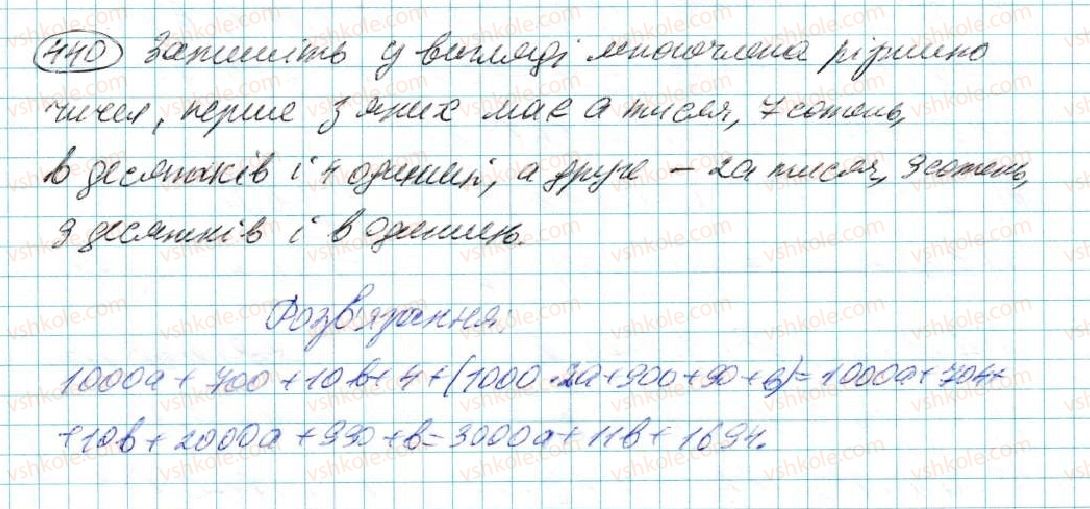 440 Запишіть у вигляді многочлена різницю
чисел, перше з яких має a тисяч, 7 сотень,
b десятків і 4 одиниці, а друге – 2a тисяч, 9 сотень,
9 десятків і b одиниць.
Розв'язання:
1000a + 700 + 10b + 4 + (1000 · 2a + 900 + 90 + b) = 1000a + 704 +
+ 10b + 2000a + 990 + b = 3000a + 11b + 1694.